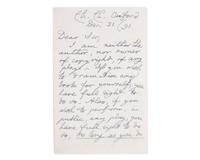 Ch. Ch. Oxford
Dec. 31 /81
Dear Sir,
I am neither the
author, nor owner
of copyright, of any
plays. If you wish
to dramatise any
books for yourself, you
have full right to
do so. Also, if you
wish to perform, in
public, any play, you
have full right to do
so, so long as you do